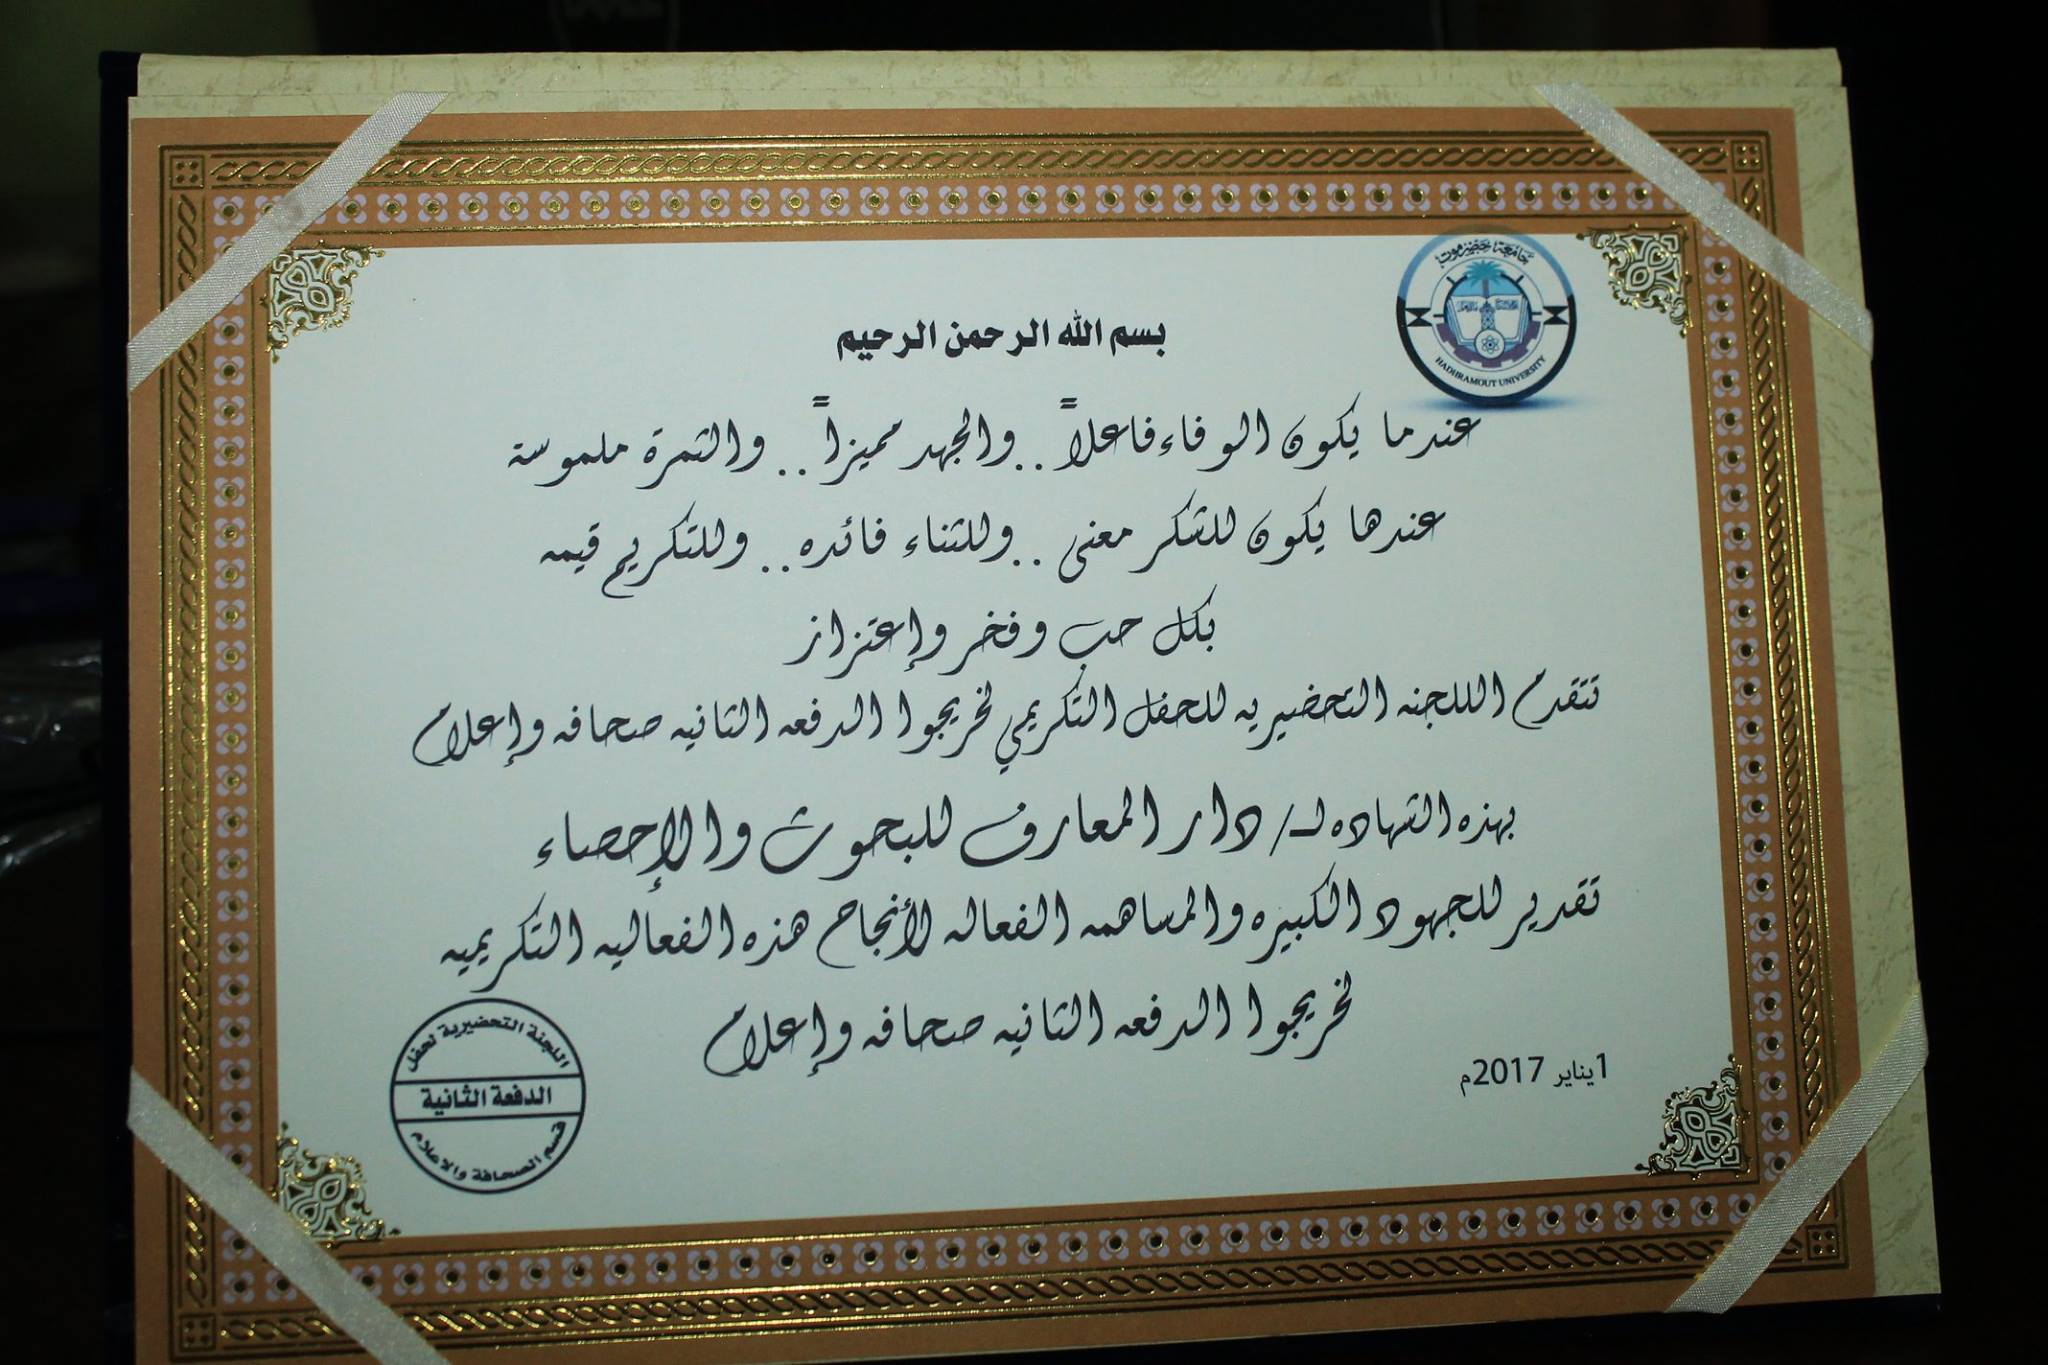 جامعة حضرموت
HADHRAMOUT UNIVERSITY
بسم الله الرحمن الرحيم
عندما يكون الوفاء فاعلاً .. والجهد مميزاً .. والثمرة ملموسة
عندها يكون للشكر معنى .. وللثناء فائده .. وللتكريم قيمه
بكل حب وفخر وإعتزاز
تتقدم الللجنه التحضيريه للحفل التكريمي لخريجوا الدفعه الثانيه صحافه وإعلام
بهذه الشهاده لـ/ دار المعارف للبحوث والإحصاء
تقدير للجهود الكبيره والمساهمه الفعاله لأنجاح هذه الفعاليه التكريميه
لخريجوا الدفعه الثانيه صحافه وإعلام
1يناير 2017م
اللجنة التحضيرية لحفل
الدفعة الثانية
قسم الصحافة والاعلام